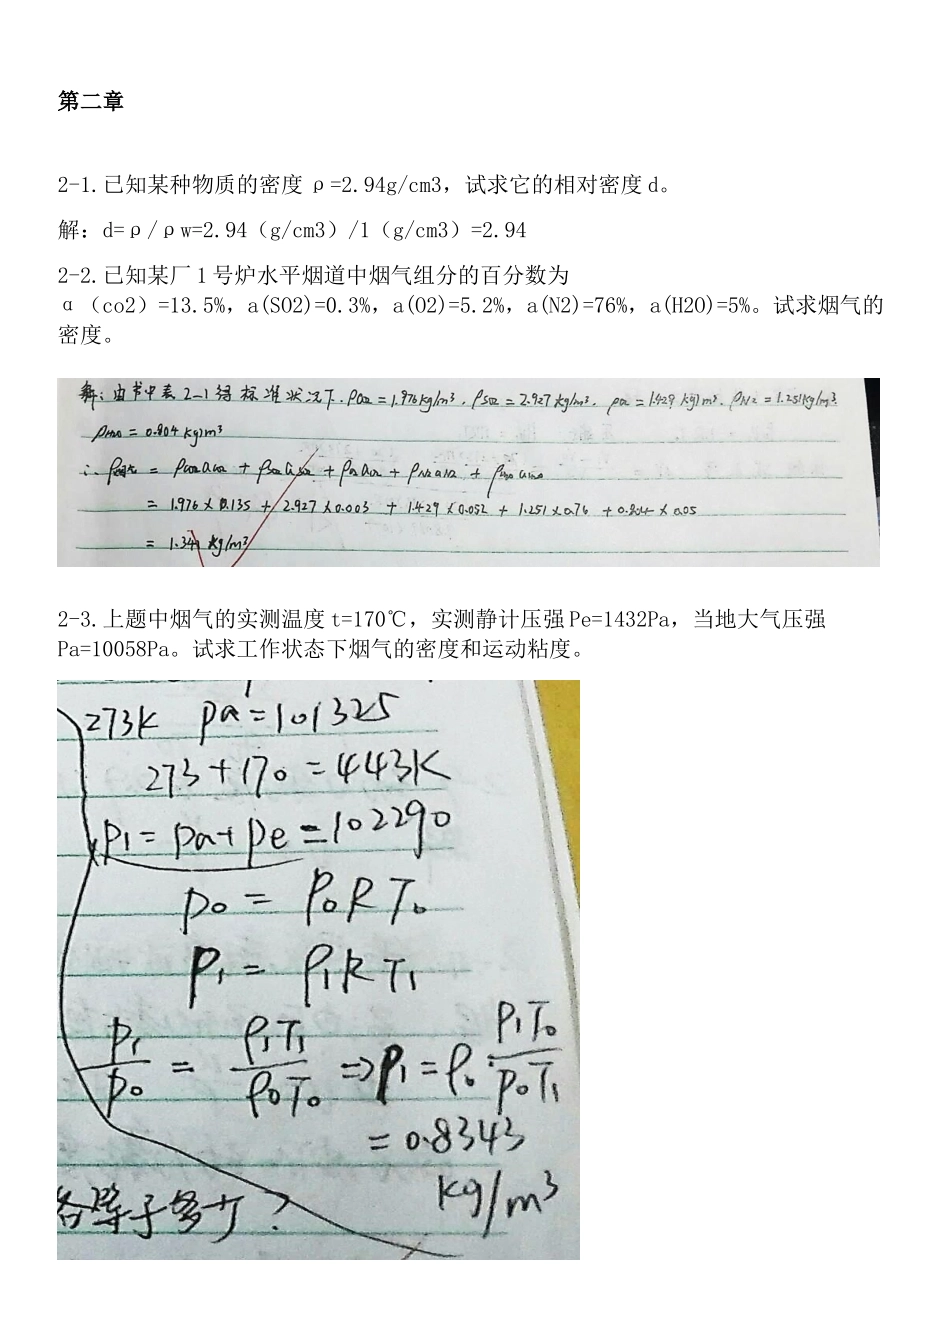 第二章
2-1.已知某种物质的密度 ρ=2.94g/cm3，试求它的相对密度 d。
解：d=ρ/ρw=2.94（g/cm3）/1（g/cm3）=2.94
2-2.已知某厂 1 号炉水平烟道中烟气组分的百分数为
α（co2）=13.5%，a(SO2)=0.3%，a(O2)=5.2%，a(N2)=76%，a(H2O)=5%。试求烟气的
密度。
解：由书中表 2-1 得标准状况下. ρco2=1.976kg/m³. ρso2=2.927kg/m³. ρo2=1.429kg/m³. ρN2=1.251kg/m³.
ρH2O=0.804kg/m³
∴ρ烟气=ρco2αco2+ρso2αso2+ρo2αo2+ρN2αN2+ρH2OαH2O
=1.976×0.135+2.927×0.003+1.429×0.052+1.251×0.76+0.804×0.05
=1.341kg/m³
2-3.上题中烟气的实测温度 t=170℃，实测静计压强 Pe=1432Pa，当地大气压强
Pa=10058Pa。试求工作状态下烟气的密度和运动粘度。
273K pa=101325
273+170=443K
p1=pa+pe=102290
p0=ρ0RT0
p1=ρ1RT1
p1/p0=ρ1T1/ρ0T0⇒ρ1=ρ0·p1T0/p0T1
=0.8343
kg/m³
各等于多少?